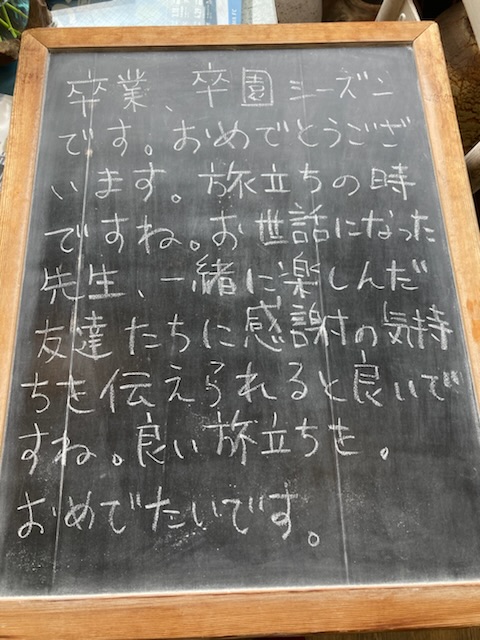 卒業、卒園シーズン
です。おめでとうござ
います。旅立ちの時
ですね。お世話になった
先生、一緒に楽しんだ
友達たちに感謝の気持
ちを伝えられると良いで
すね。良い旅立ちを。
おめでたいです。